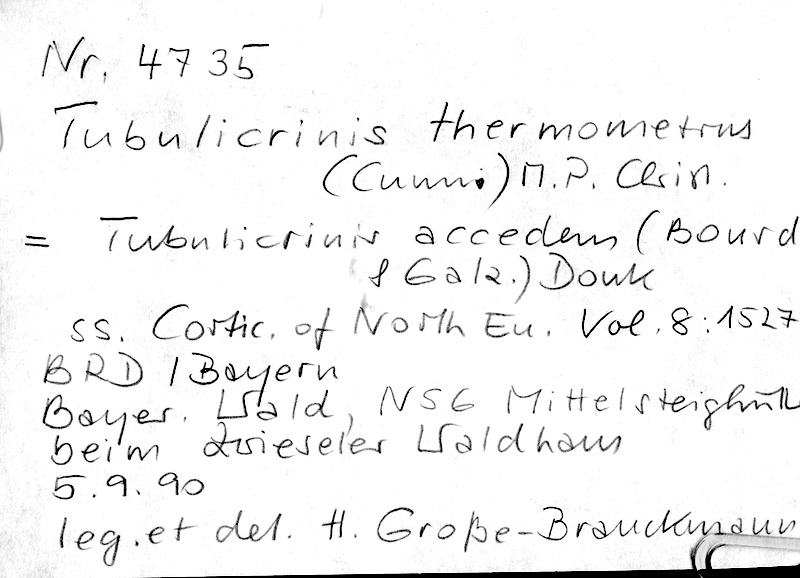 Nr. 4735
Tubulicrinis thermometrus
(Cunn.) M.P. Christ.
= Tubulicrinis accedens (Bourd
& Galz.) Donk
ss. Cortic. of North Eu. Vol. 8:1527
BRD / Bayern
Bayer. Wald, NSG Mittelsteighütt
beim Zwieseler Waldhaus
5.9.90
leg. et det. H. Große-Brauckmann